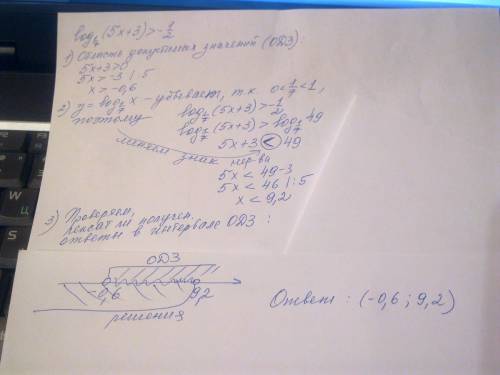 log_{1/7} (5x+3) > -1/2
1) Область допустимых значений (ОДЗ):
5x+3>0
5x > -3 |:5
x > -0,6
2) y = log_{1/7} x - убывает, т.к. 0<1/7<1,
поэтому log_{1/7} (5x+3) > -1/2
log_{1/7} (5x+3) > log_{1/7} 49
меняем знак нер-ва
5x+3 < 49
5x < 49-3
5x < 46 |:5
x < 9,2
3) Проверяем,
лежат ли получен.
ответы в интервале ОДЗ:
ОДЗ
-0,6 9,2
решения
Ответ: (-0,6; 9,2)